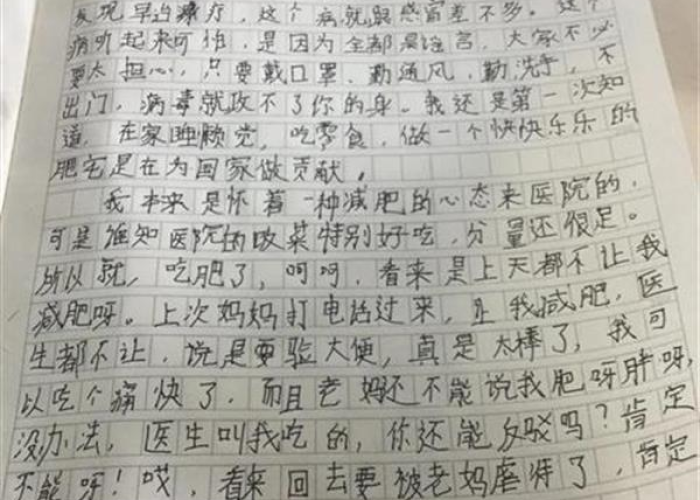 发现早治疗，这个病就跟感冒差不多。这个
病听起来可怕，是因为全都是谣言，大家不必
要太担心，只要戴口罩、勤通风、勤洗手，不
出门，病毒就政不了你的身。我还是第一次知
道，在家睡颗党，吃零食，做一个快快乐乐的
肥宅是在为国家做贡献。
我本来是怀着一种减肥的心态来医院的，
可是谁知医院的饭菜特别好吃，分量还很足。
所以就，吃肥了，呵呵，看来是上天都不让我
减肥呀。上次妈妈打电话过来，让我减肥，医
生都不让，说是要验大便，真是太棒了，我可
以吃个痛快了，而且老妈还不能说我肥呀胖呀，
没办法，医生叫我吃的，你还能反驳吗？肯定
不能呀！哎，看来回去要被老妈虐待了，肯定